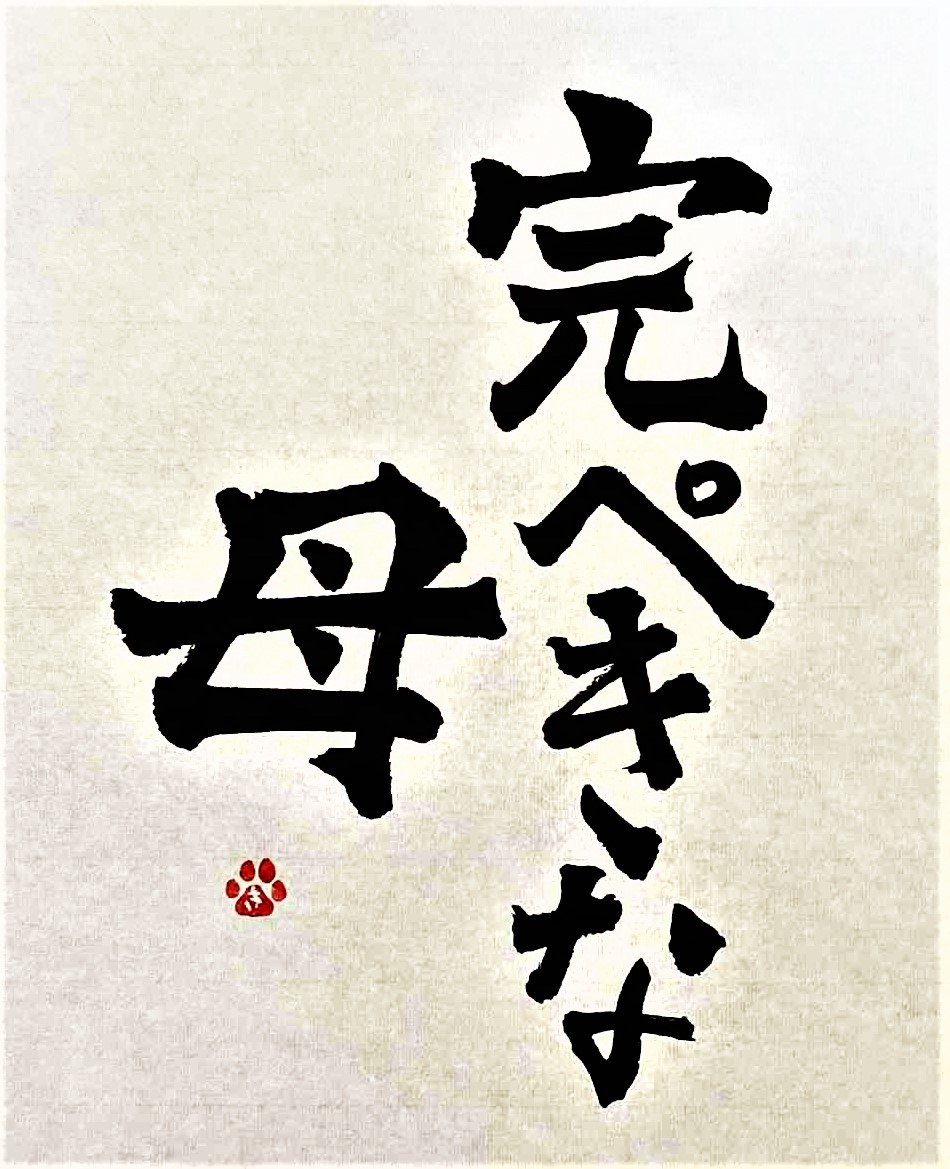 完ぺきな
母